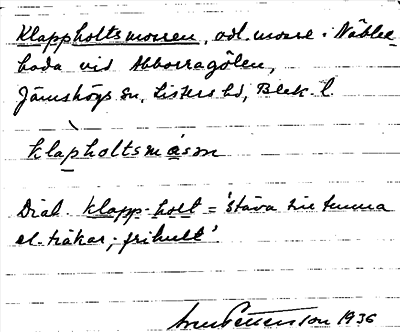 Klappholtsmossen, odl. mosse i Näble-
boda vid Abborragölen,
Jämshögs sn, Listers hd, Blek. l.
klapholtsmåsen
Dial. klapp-holt = 'stäva till tunna
el.
1936